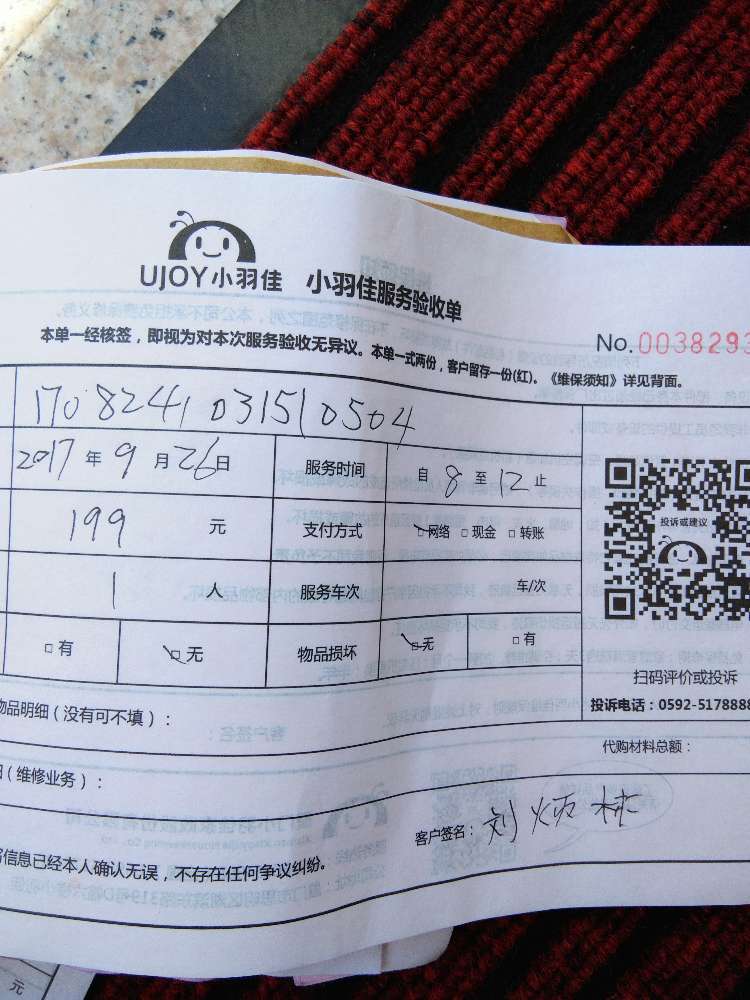 UJOY小羽佳 小羽佳服务验收单
本单一经核签，即视为对本次服务验收无异议。本单一式两份，客户留存一份(红)。《维保须知》详见背面。
No.0038293
1708241031510504
2017年9月26日 服务时间 自8至12止
199元 支付方式 □网络 □现金 □转账
1人 服务车次 车/次
□有 □无 物品损坏 □无 □有
投诉或建议
扫码评价或投诉
投诉电话：0592-5178888
物品明细（没有可不填）：
代购材料总额：
（维修业务）：
客户签名：刘 林
信息已经本人确认无误，不存在任何争议纠纷。
元